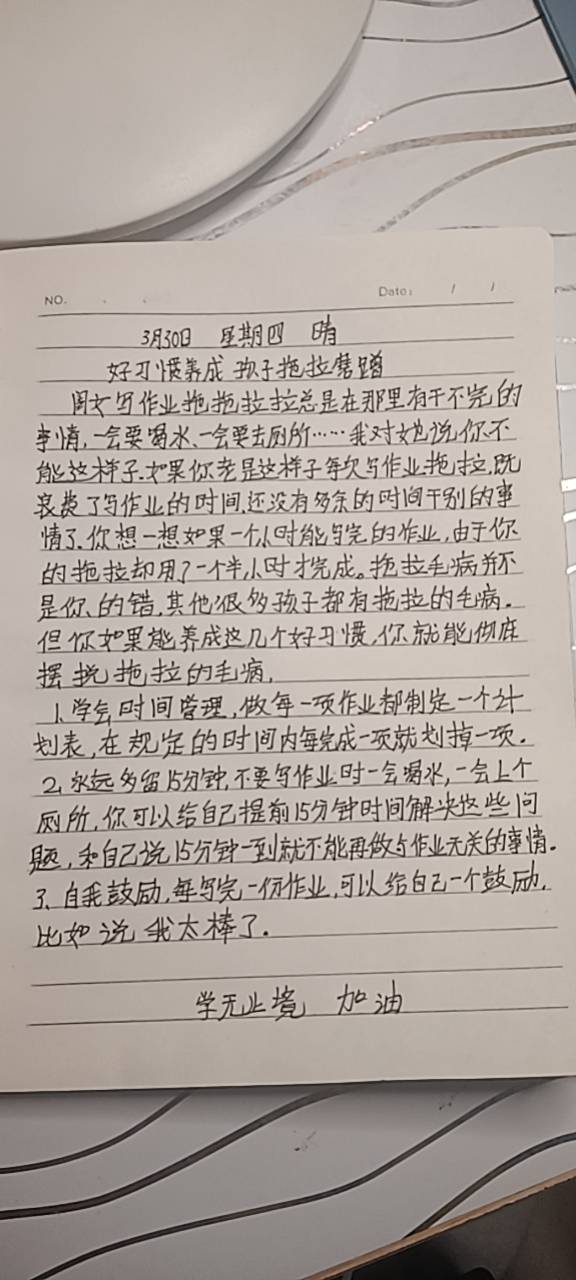 NO.
Date: / /
3月30日 星期四 晴
好习惯养成 孩子拖拉磨蹭
闺女写作业拖拖拉拉总是在那里有干不完的
事情,一会要喝水、一会要去厕所……我对她说你不
能这样子.如果你老是这样子每次写作业拖拉,既
浪费了写作业的时间,还没有多余的时间干别的事
情了.你想一想如果一个小时能写完的作业,由于你
的拖拉却用了一个半小时才完成。拖拉毛病并不
是你的错,其他很多孩子都有拖拉的毛病.
但你如果能养成这几个好习惯,你就能彻底
摆脱拖拉的毛病.
1.学会时间管理,做每一项作业都制定一个计
划表,在规定的时间内每完成一项就划掉一项.
2.永远多留15分钟,不要写作业时一会喝水,一会上个
厕所,你可以给自己提前15分钟时间解决这些问
题,和自己说15分钟一到就不能再做与作业无关的事情.
3.自我鼓励,每写完一份作业,可以给自己一个鼓励,
比如说 我太棒了.
学无止境 加油